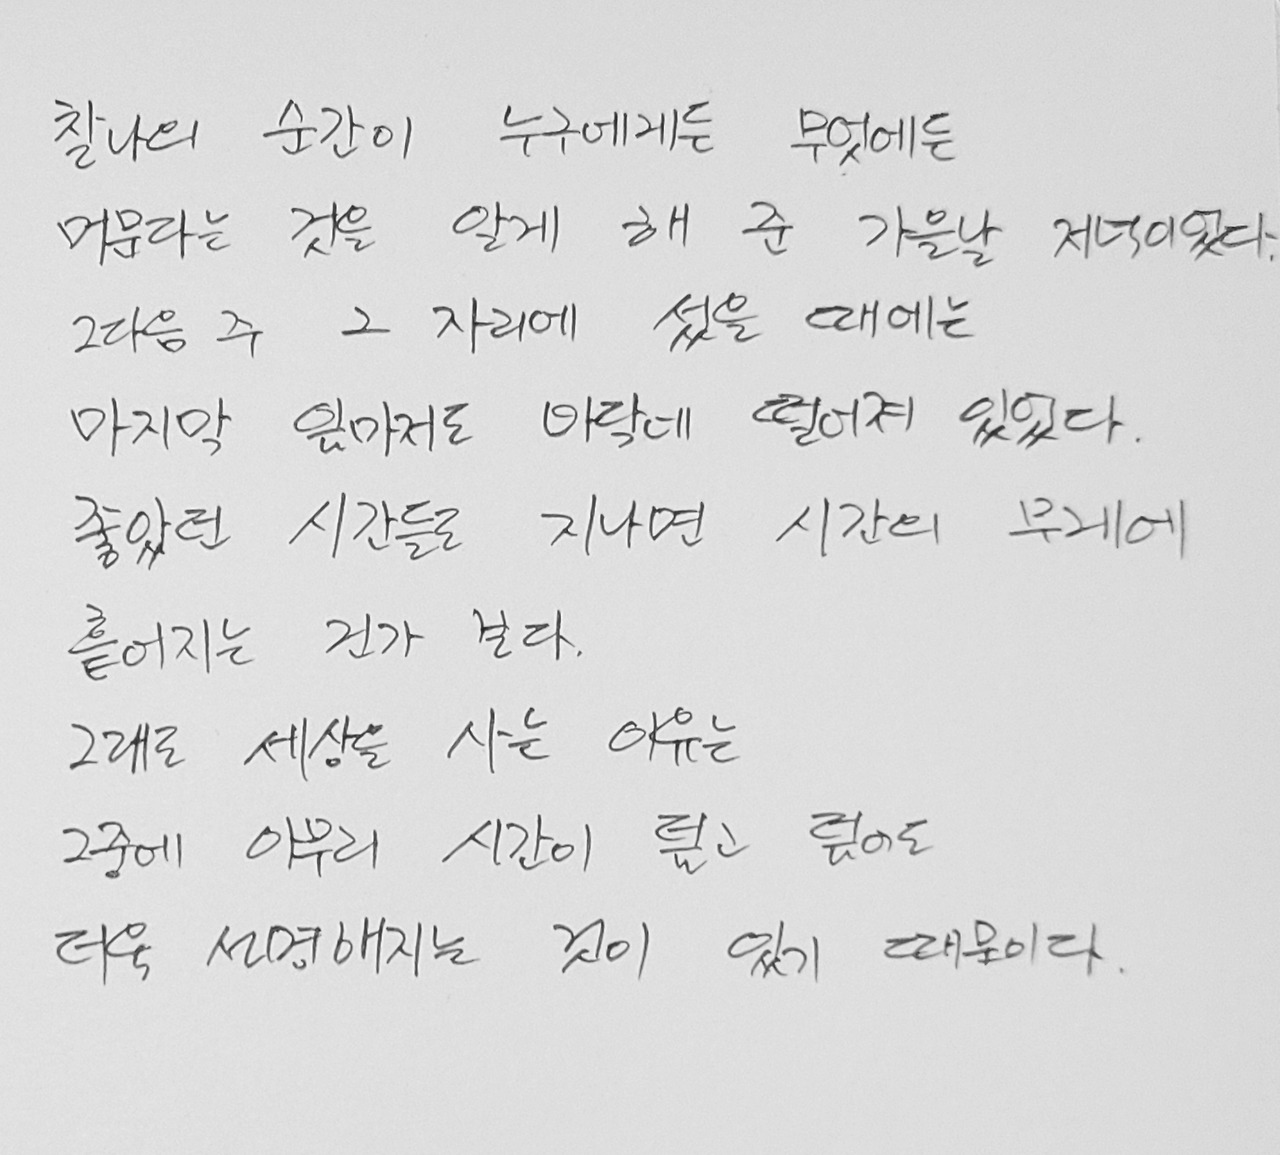 찰나의 순간이 누구에게든 무엇에든
머문다는 것을 알게 해 준 가을날 저녁이었다.
그다음 주 그 자리에 섰을 때에는
마지막 잎마저도 바닥에 떨어져 있었다.
좋았던 시간들도 지나면 시간의 무게에
흩어지는 건가 보다.
그래도 세상을 사는 이유는
그중에 아무리 시간이 덮고 덮어도
더욱 선명해지는 것이 있기 때문이다.